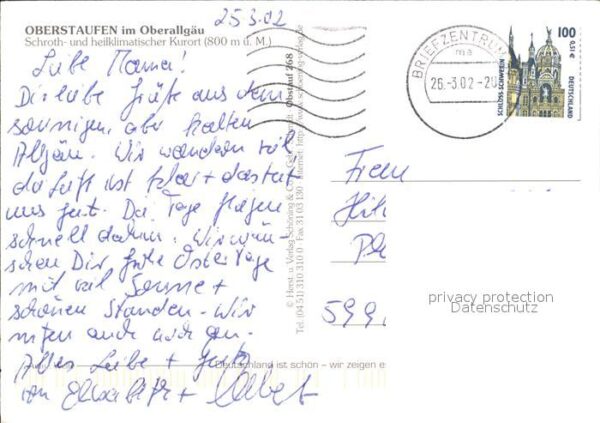 25.3.02
OBERSTAUFEN im Oberallgäu
Schroth- und heilklimatischer Kurort (800 m ü. M.)
Liebe Mama!
Dir liebe Grüße aus dem
sonnigen, aber kalten
Allgäu. Wir wandern viel,
die Luft ist klar + das tut
uns gut. Die Tage fliegen
schnell dahin. Wir wün-
schen Dir gute Ostertage
mit viel Sonne +
schönen Stunden. Wir
rufen auch mal an.
Alles Liebe + Gute
von Elisabeth +
© Herst. u. Verlag Schöning & Co + Gebr. Schmidt · Obstauf 268
Tel. (04 51) 310 310 0 · Fax 31 03 130 · Internet: http://www.schoening-verlag.de
Deutschland ist schön – wir zeigen e
BRIEFZENTRUM
26.-3.02-20
100
0,51 €
DEUTSCHLAND
SCHLOSS SCHWERIN
Frau
Hil
Pl
599
privacy protection
Datenschutz